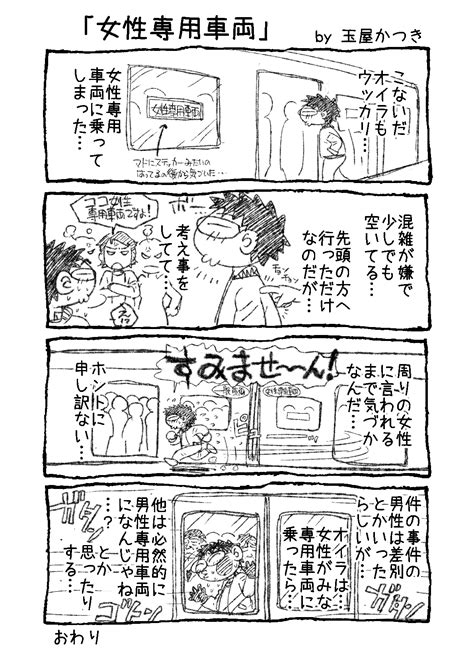 「女性専用車両」
by 玉屋かつき
こないだ
オイラも
ウッカリ…
女性専用車両
女性専用
車両に乗って
しまった…
マドにステッカーみたいの
はってるの後から気づいた…
混雑が嫌で
少しでも
空いてる…
先頭の方へ
行っただけ
なのだが…
チョンチョン
ボー
考え事を
してて…
ココ女性
専用車両ですよ!
周りの女性
に言われる
まで気づか
なんだ…
すみませ〜ん!
女性専用車両
ホントに
申し訳ない…
件の事件の
男性は差別
とかいった
らしいが…
ガタン
オイラは…
女性がみな
女性専用車両に
乗ったら…
ゴトン
他は必然的に
男性専用車両
になんじゃね
…?とか
思ったり
する…
ガタン
ゴトン
おわり